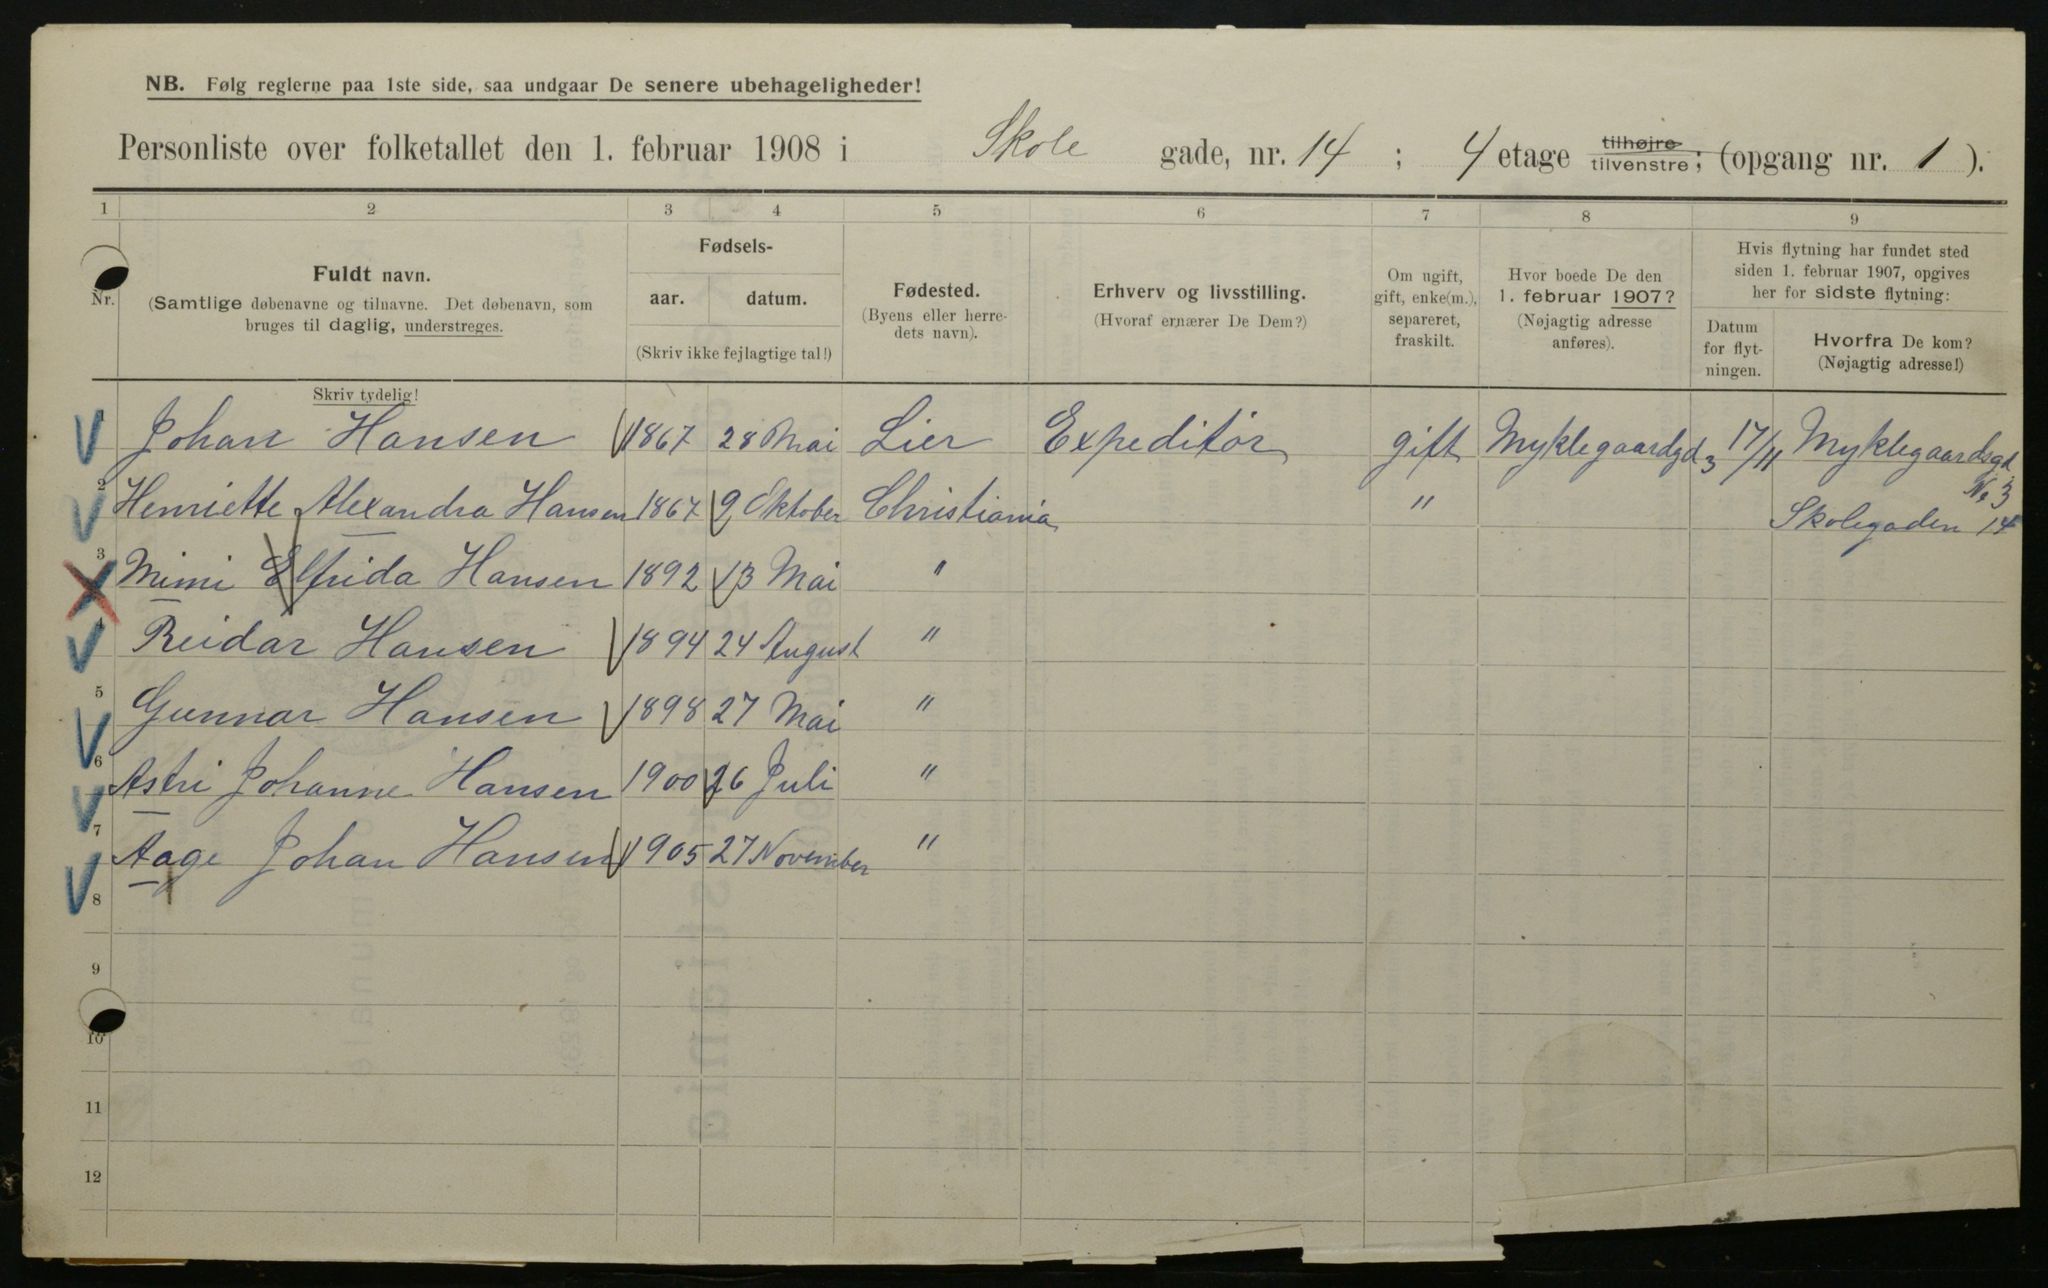 NB. Følg reglerne paa 1ste side, saa undgaar De senere ubehageligheder!
Personliste over folketallet den 1. februar 1908 i Skole gade, nr. 14 ; 4 etage tilhøjre tilvenstre; (opgang nr. 1 ).
1 2 3 4 5 6 7 8 9
Nr.
Fuldt navn.
(Samtlige døbenavne og tilnavne. Det døbenavn, som
bruges til daglig, understreges.
Skriv tydelig!
Fødsels-
aar. datum.
(Skriv ikke fejlagtige tal!)
Fødested.
(Byens eller herre-
dets navn).
Erhverv og livsstilling.
(Hvoraf ernærer De Dem?)
Om ugift,
gift, enke(m.),
separeret,
fraskilt.
Hvor boede De den
1. februar 1907?
(Nøjagtig adresse
anføres).
Hvis flytning har fundet sted
siden 1. februar 1907, opgives
her for sidste flytning:
Datum
for flyt-
ningen.
Hvorfra De kom?
(Nøjagtig adresse!)
1 Johan Hansen 1867 28 Mai Lier Expeditør gift Myklegaardgd 3 17/11 Myklegaardsgd
No 3
2 Henriette Alexandra Hansen 1867 9 Oktober Christiania " Skolegaden 14
3 Mimi Elfrida Hansen 1892 13 Mai "
4 Reidar Hansen 1894 24 August "
5 Gunnar Hansen 1898 27 Mai "
6 Astri Johanne Hansen 1900 26 Juli "
7 Aage Johan Hansen 1905 27 November "
8
9
10
11
12